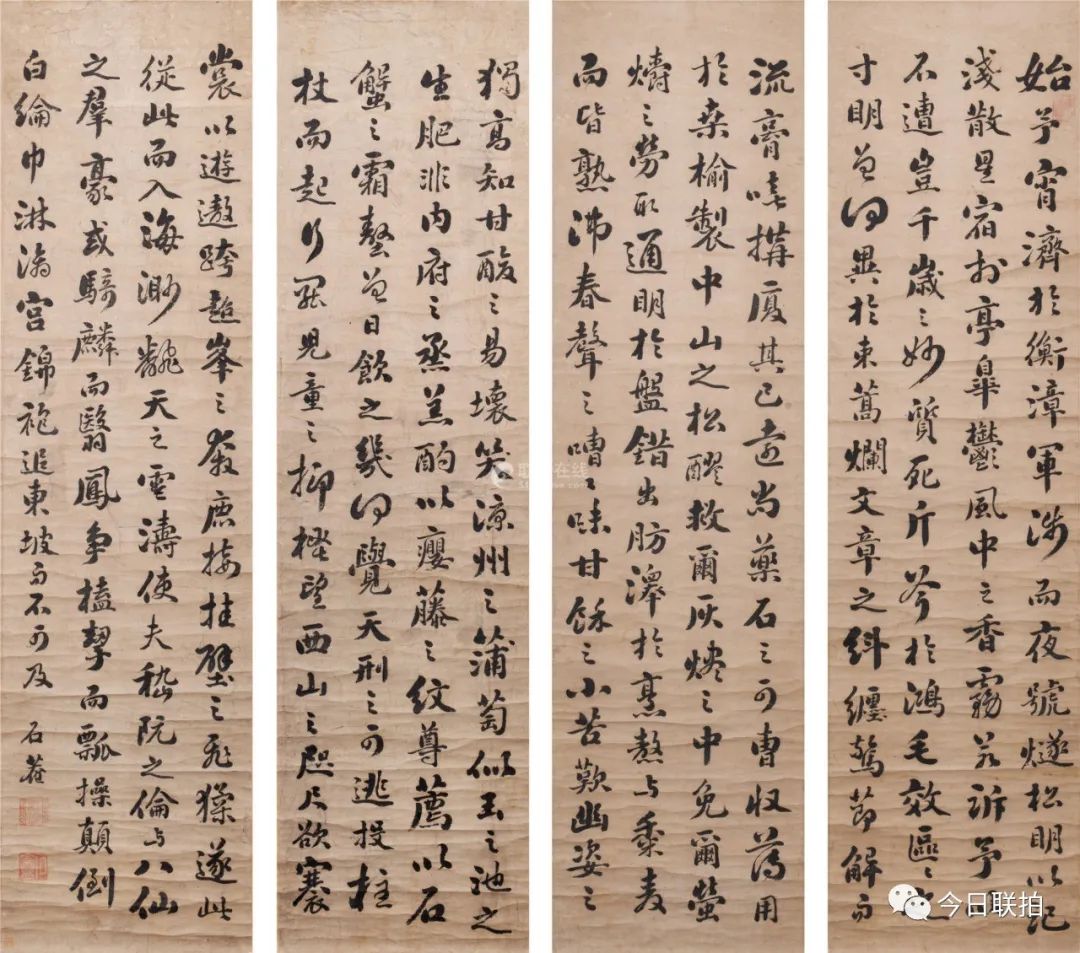 始予宵濟於衡漳軍涉而夜號燧松明以記
淺散星宿於亭皋鬱風中之香霧若訴予以
不遭豈千歲〻妙質死斤斧於鴻毛效區〻之
寸明曾何異於束蒿爛文章之糾纏驚節解而
流膏嘻搆廈其已遠尚藥石之可曹收薄用
於桑榆製中山之松醪救爾灰燼之中免爾螢
爝之勞取通明於盤錯出肪澤於烹熬與黍麦
而皆熟沸舂聲之嘈〻味甘餘之小苦歎幽姿之
獨高知甘酸之易壞笑涼州之蒲萄似玉之池之
生肥非內府之蒸羔酌以癭藤之紋尊薦以石
蟹之霜螯曾日飲之幾何覺天刑之可逃投柱
杖而起行罷兒童之抑搔望西山之咫尺欲褰
裳以遊遨跨超峯之奔鹿接挂壁之飛猱遂此
從此而入海渺翻天之雲濤使夫嵇阮之倫與八仙
之羣豪或騎麟而翳鳳爭榼挈而瓢操顛倒
白綸巾淋漓宮錦袍追東坡而不可及 石菴
今日联拍